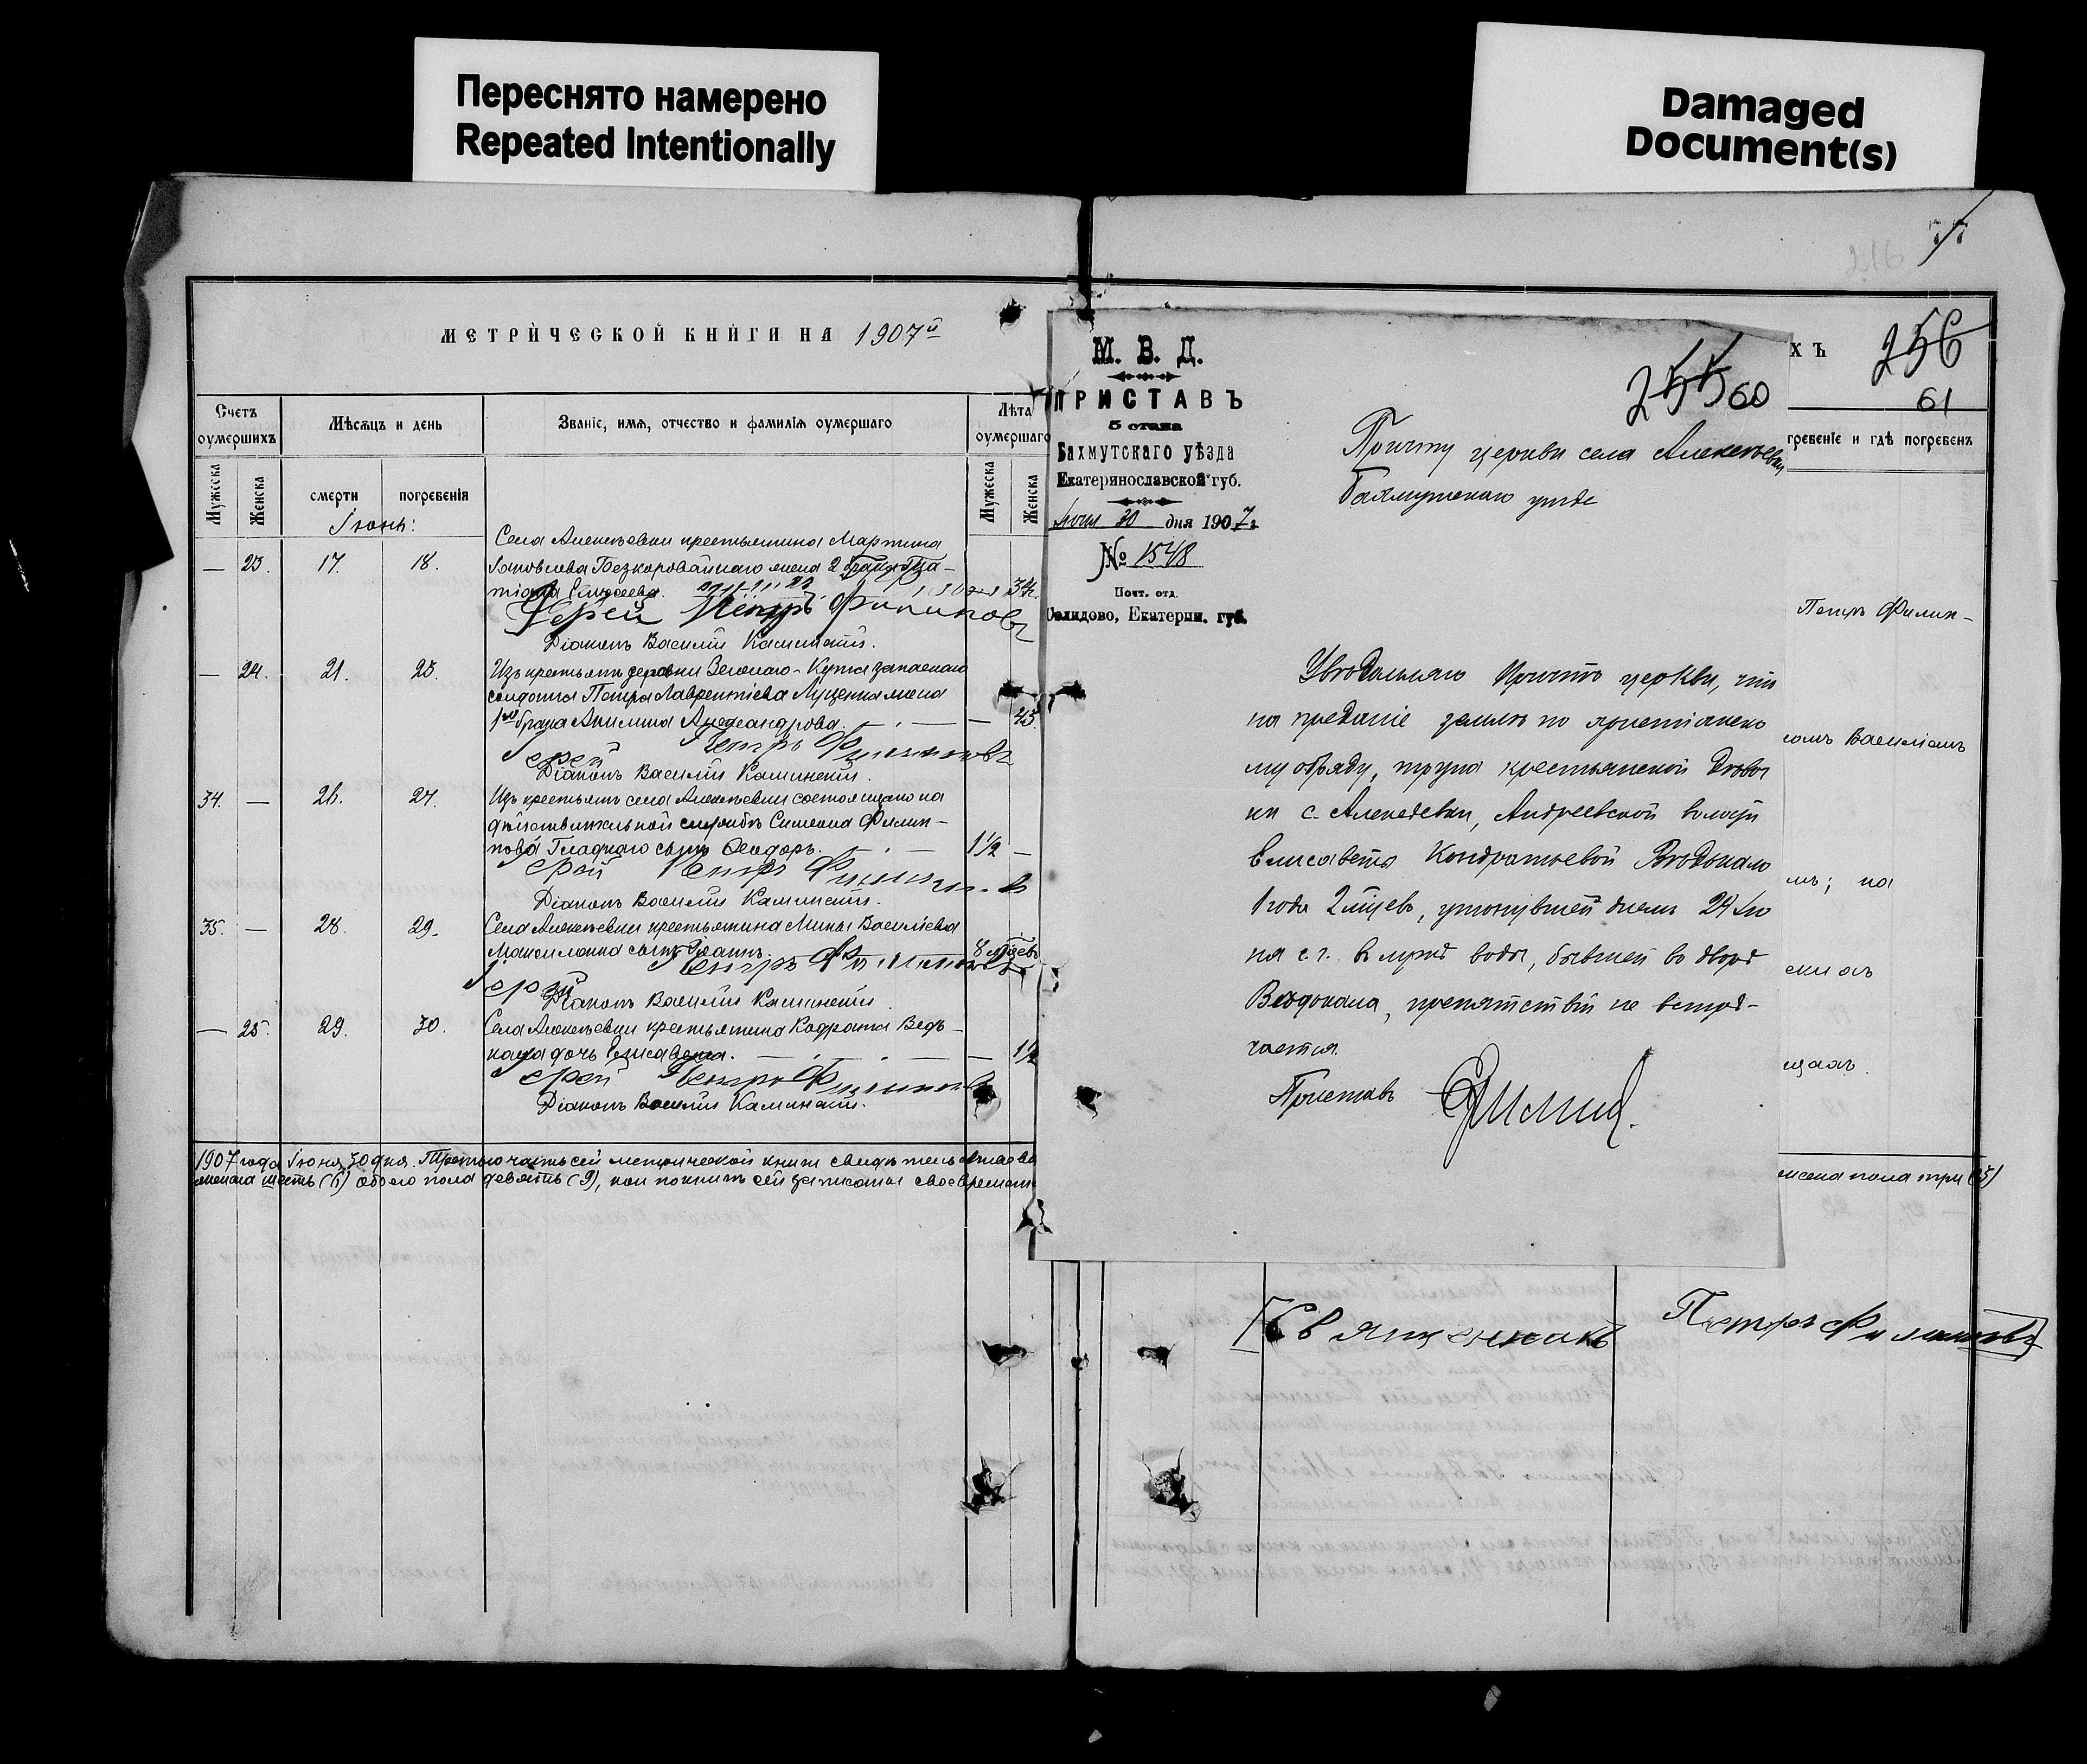 Переснято намерено
Repeated Intentionally
Damaged
Document(s)
77
МЕТРИЧЕСКОЙ КНИГИ НА 1907й
Счетъ оумершихъ
Мѣсѧцъ и день
Званіе, имѧ, отчество и фамиліѧ оумершаго
Лѣта оумершаго
Мужеска
Женска
смерти
погребеніѧ
Мужеска
Женска
Іюнь:
Села Алексѣевки крестьянина Мартина
— 23. 17. 18. Яковлева Безкоровайнаго жена 2 брака Та-
тіана Елисеева. 34.
Іерей Петръ Филиповъ
Діаконъ Василій Каминскій.
— 24. 21. 23. Изъ крестьянъ деревни Зеленаго-Кута запаснаго
солдата Петра Лаврентіева Луценка жена
1го брака Акилина Александрова. — 43.
Іерей Петръ Филиповъ
Діаконъ Василій Каминскій.
34. — 26. 27. Изъ крестьянъ села Алексѣевки состоящаго на
дѣйствительной службѣ Симеона Филип-
пова Гладкаго сынъ Ѳеодоръ. 1½ —
Іерей Петръ Филиповъ
Діаконъ Василій Каминскій.
35. — 28. 29. Села Алексѣевки крестьянина Мины Василіева
Максименка сынъ Іоаннъ. 8 мѣсяцевъ
Іерей Петръ Филиповъ
Діаконъ Василій Каминскій
— 25. 29. 30. Села Алексѣевки крестьянина Кодрата Ведь-
кала дочь Елисавета. — 1½
Іерей Петръ Филиповъ
Діаконъ Василій Каминскій.
1907 года Іюня 30 дня. Третью часть сей метрической книги свидѣтельствовали
женска шесть (6) обоего пола девять (9), кои по книгѣ сей записаны своевременно
М. В. Д.
ПРИСТАВЪ
5 стана
Бахмутскаго уѣзда
Екатеринославской губ.
Іюня 30 дня 1907 г.
№ 1548
Почт. отд.
Селидово, Екатерин. губ.
255 60
Причту церкви села Алексѣевки
Бахмутскаго уѣзда
Увѣдомляю Причтъ церкви, что
на преданіе землѣ по христіанско
му обряду, трупа крестьянской дѣвоч
ки с. Алексѣевки, Андреевской волости
Елисаветы Кондратьевой Вѣдькало
1 года 2 мѣсяцевъ, утонувшей днемъ 29 Ію
ня с. г. въ лужѣ воды, бывшей во дворѣ
Ведькала, препятствій не встрѣ-
чается.
Приставъ
ХЪ
256
61
гребеніе и гдѣ погребенъ
Петръ Филип-
омъ Василіемъ
мъ; на
мужеска пола три (3)
Священникъ Петръ Филиповъ